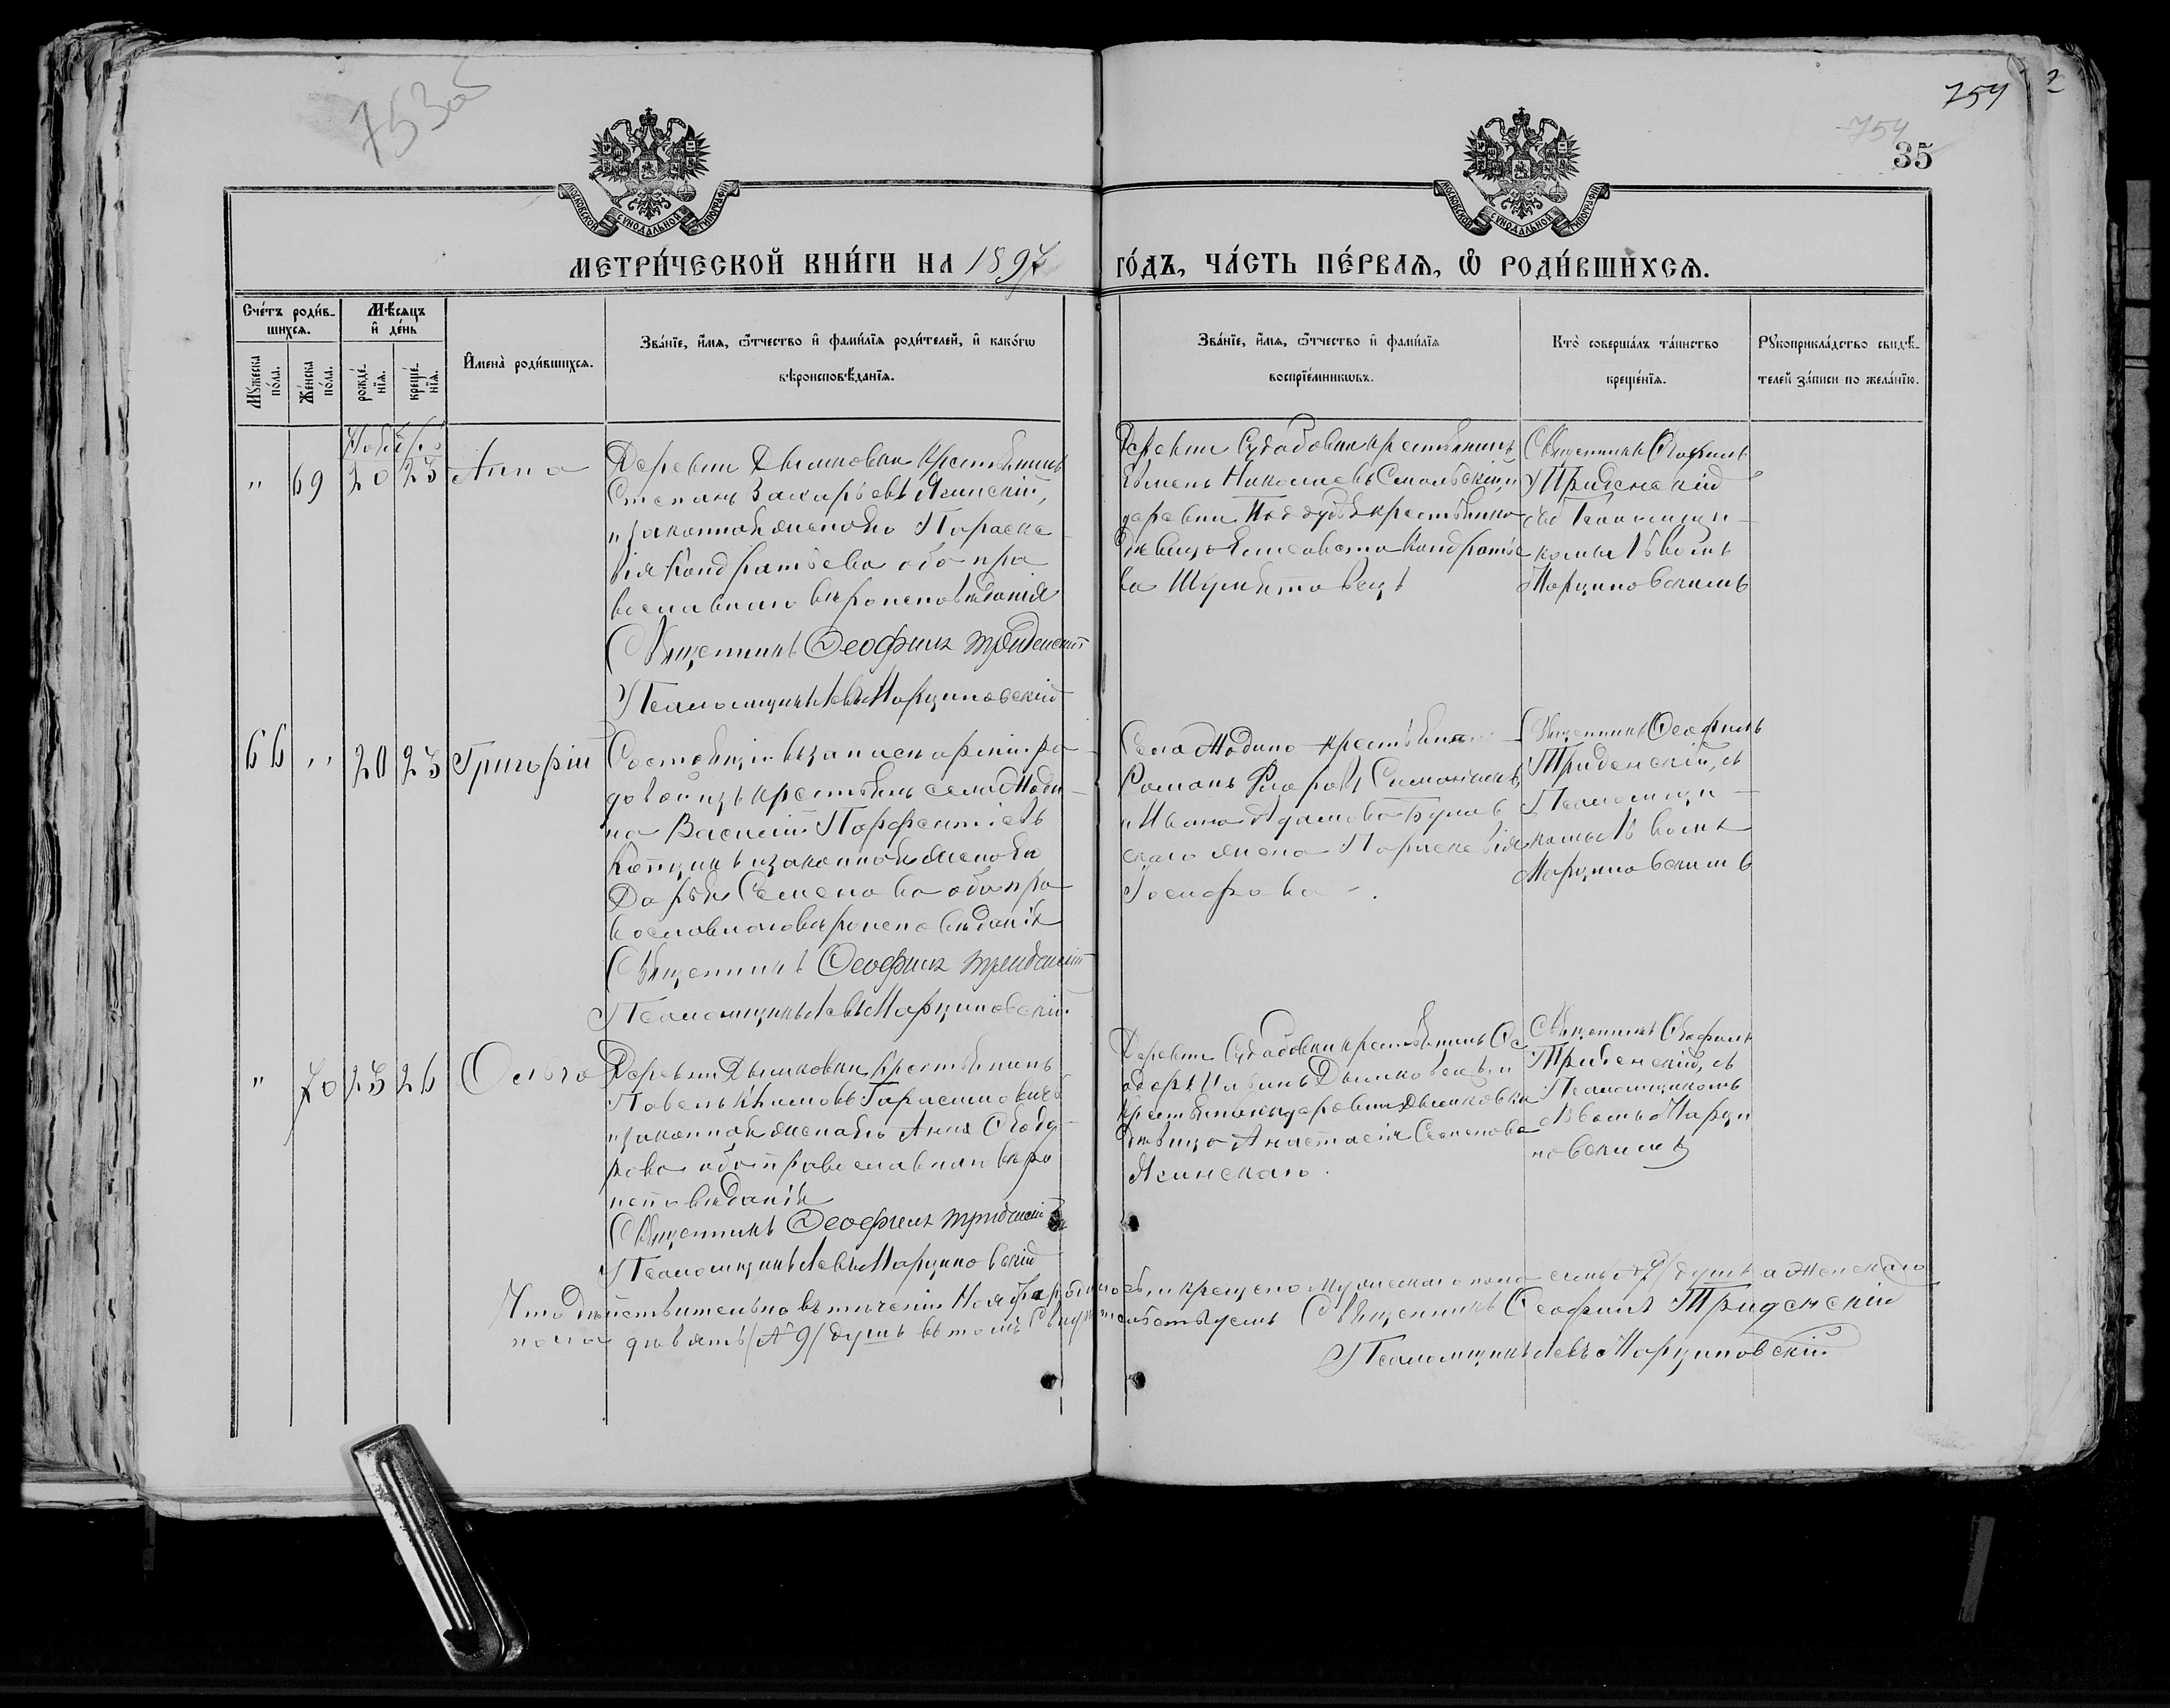 753об
754
2
754
35
МОСКОВСКОЙ СУНОДАЛЬНОЙ ТИПОГРАФІИ
МОСКОВСКОЙ СУНОДАЛЬНОЙ ТИПОГРАФІИ
МЕТРИ́ЧЕСКОЙ КНИ́ГИ НА 1897
ГО́ДЪ, ЧА́СТЬ ПЕ́РВАЯ, Ѡ РОДИ́ВШИХСЯ.
Сче́тъ роди́в-
шихся.
Мѣсяцъ
и де́нь
Му́жеска
по́ла.
Же́нска
по́ла.
рожде́-
нїя.
креще́-
нїя.
Имена̀ роди́вшихся.
Зва́нїе, и́мя, ѻ҆́тчество и фами́лїя роди́телей, и како́гѡ
вѣроисповѣ́данїя.
Зва́нїе, и́мя, ѻ҆́тчество и фами́лїя
воспрїе́мникѡвъ.
Кто̀ соверша́лъ та́инство
креще́нїя.
Рукоприкла́дство свидѣ́-
телей за́писи по жела́нїю.
Ноября
" 69 20 23 Анна
Деревни Дымковки крестьянинъ
Степанъ Захарьевъ Ясинскій,
и законная жена его Параске
вія Кондратьева оба пра
вославнаго вѣроисповѣданія
Священникъ Ѳеофилъ Триденскій
Псаломщикъ Левъ Марциновскій
Деревни Судадовки крестьянинъ
Николаевъ
деревни Поддубья крестьянка
дѣвица Елисавета Кондратье
ва
Священникъ Ѳеофилъ
Триденскій
съ Псаломщи-
комъ Львомъ
Марциновскимъ
66 " 20 23 Григорій
Состоящій въ запасѣ арміи ря
довой изъ крестьянъ села
на Василій Парфентіевъ
и законная жена его
Дарья Семенова оба пра
вославнаго вѣроисповѣданія
Священникъ Ѳеофилъ Триденскій
Псаломщикъ Левъ Марциновскій
Села крестьянинъ
Романъ
и Ивана Адамова
скаго жена Параскевія
Іосифова.
Священникъ Ѳеофилъ
Триденскій, съ
Псаломщи-
комъ Львомъ
Марциновскимъ
" 70 23 26 Ольга
Деревни Дымковки крестьянинъ
Павелъ Климовъ Гарасимовичъ
и законная жена его Анна Ѳеодо
рова оба православнаго вѣро
исповѣданія
Священникъ Ѳеофилъ Триденскій
Псаломщикъ Левъ Марциновскій
Деревни Судадовки крестьянинъ Ѳе
одоръ и
крестьянина деревни Дымковки
дѣвица Анастасія Семенова
Ясинскаго.
Священникъ Ѳеофилъ
Триденскій, съ
Псаломщикомъ
Львомъ Марци
новскимъ
Что дѣйствительно въ теченіи Ноября родилось, и крещено мужескаго пола семь /№ 7/ душъ а женскаго
пола девять /№ 9/ душъ въ томъ свидѣтельствуемъ Священникъ Ѳеофилъ Триденскій
Псаломщикъ Левъ Марциновскій